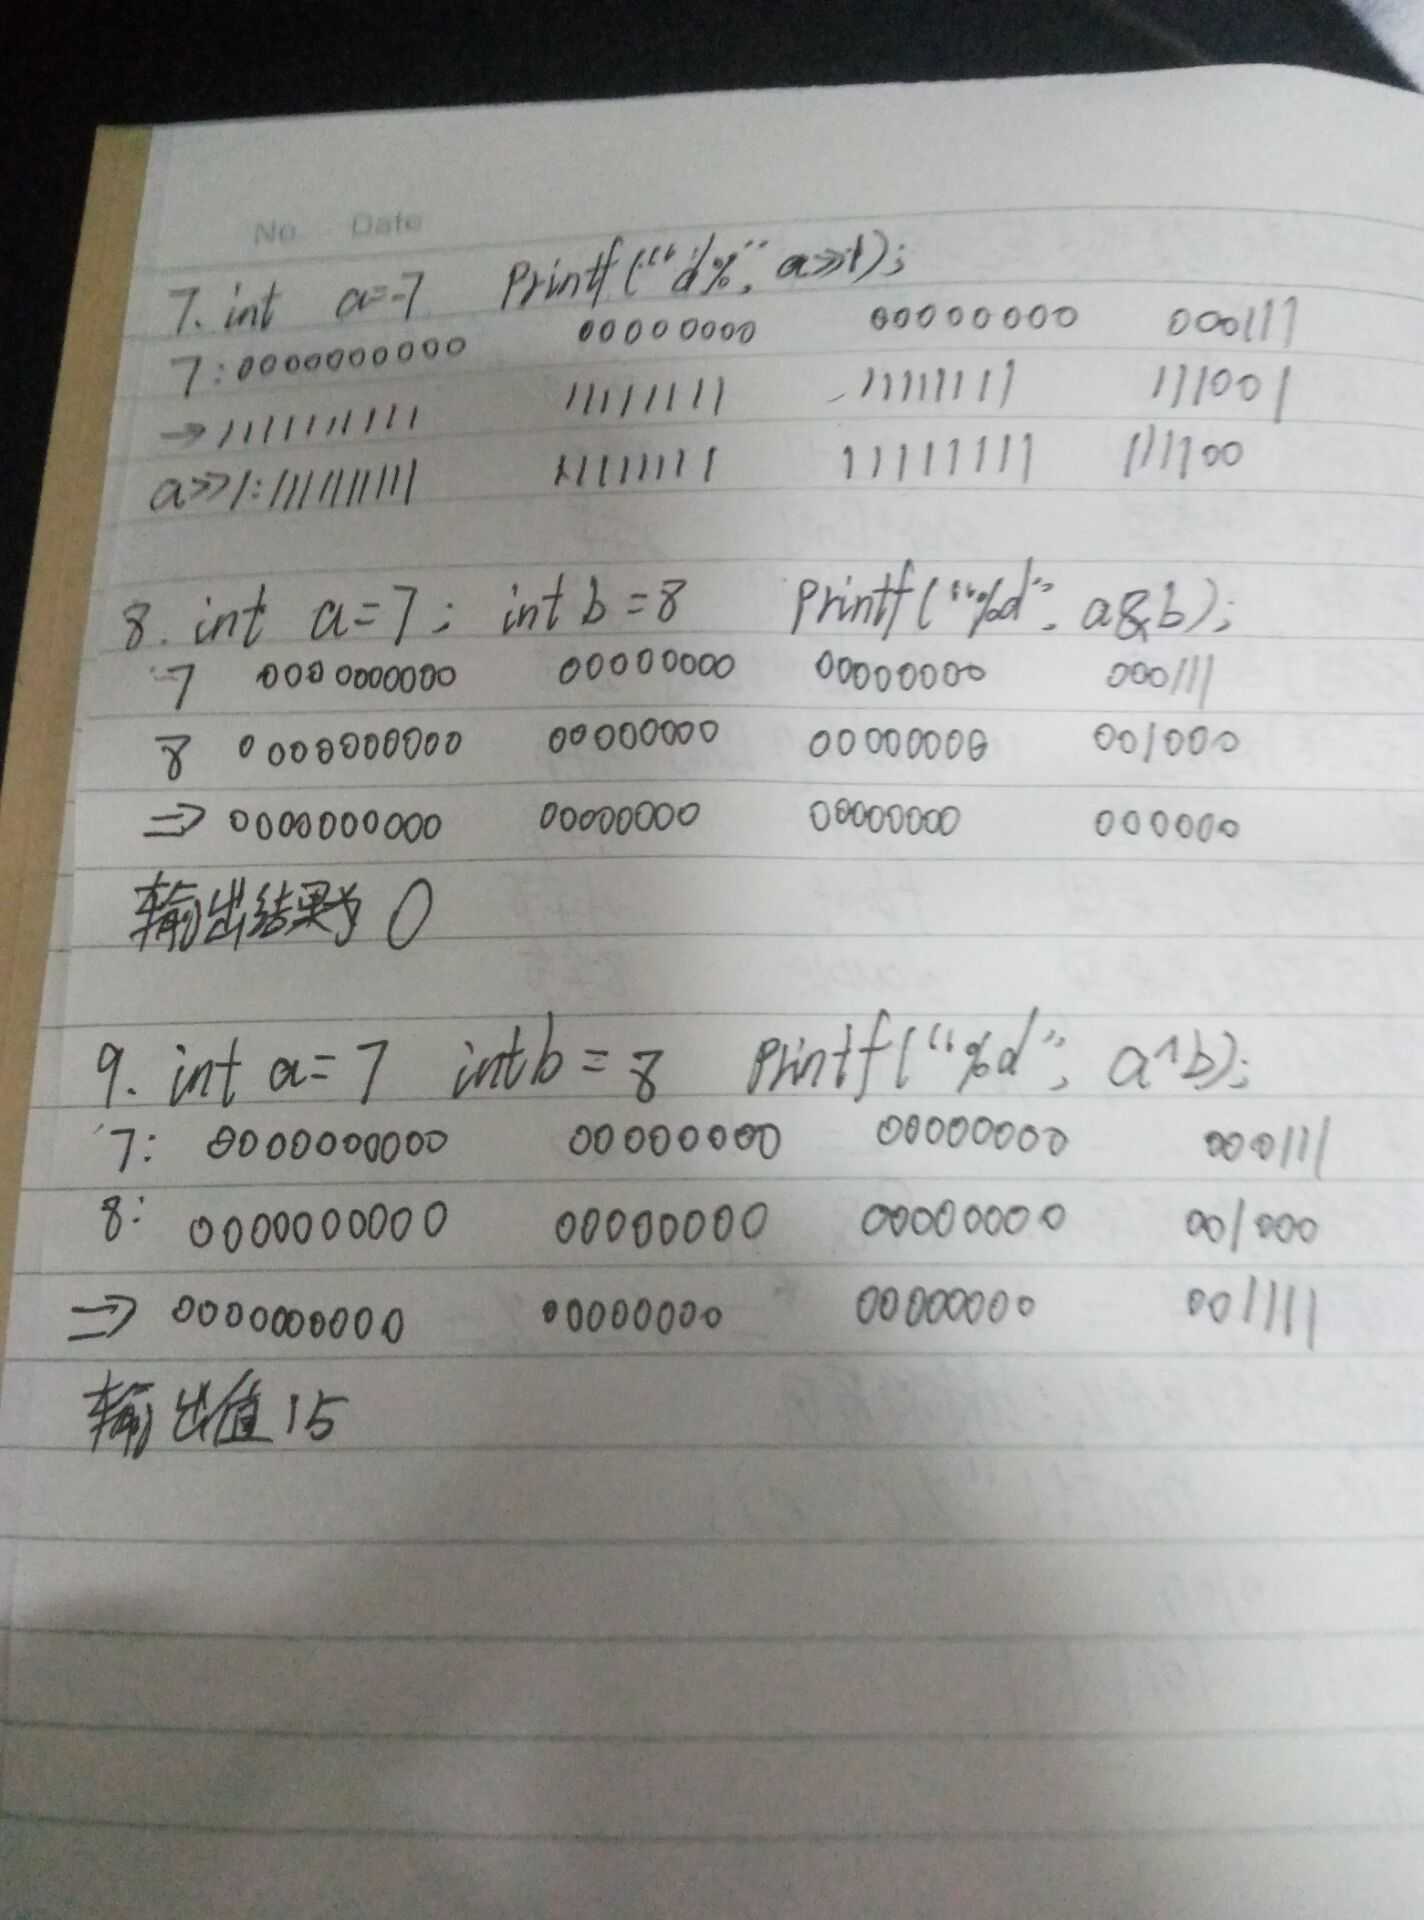 No. Date
7. int a=-7 Printf("d%", a>>1);
7:0000000000 00000000 00000000 000111
→1111111111 11111111 11111111 111001
a>>1:1111111111 11111111 11111111 111100
8. int a=7; int b=8 Printf("%d", a&b);
7 0000000000 00000000 00000000 000111
8 0000000000 00000000 00000000 001000
⇒ 0000000000 00000000 00000000 000000
输出结果为 0
9. int a=7 int b=8 Printf("%d", a^b);
7: 0000000000 00000000 00000000 000111
8: 0000000000 00000000 00000000 001000
⇒ 0000000000 00000000 00000000 001111
输出值15